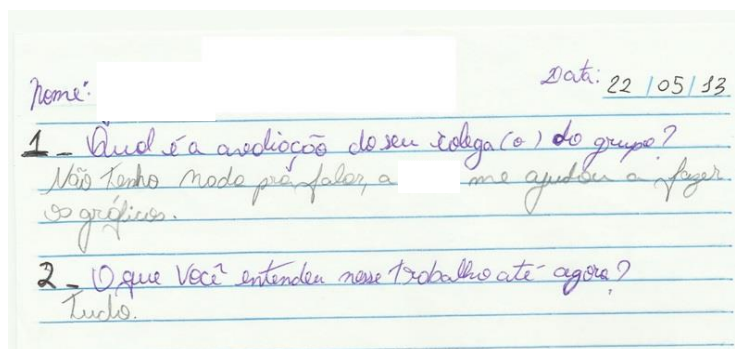 Nome:
Data: 22/05/13
1 - Qual é a avaliação do seu colega(o) do grupo?
Não Tenho nada prá falar, a me ajudou a fazer
os gráficos.
2 - O que Você entendeu nesse trabalho até agora?
Tudo.